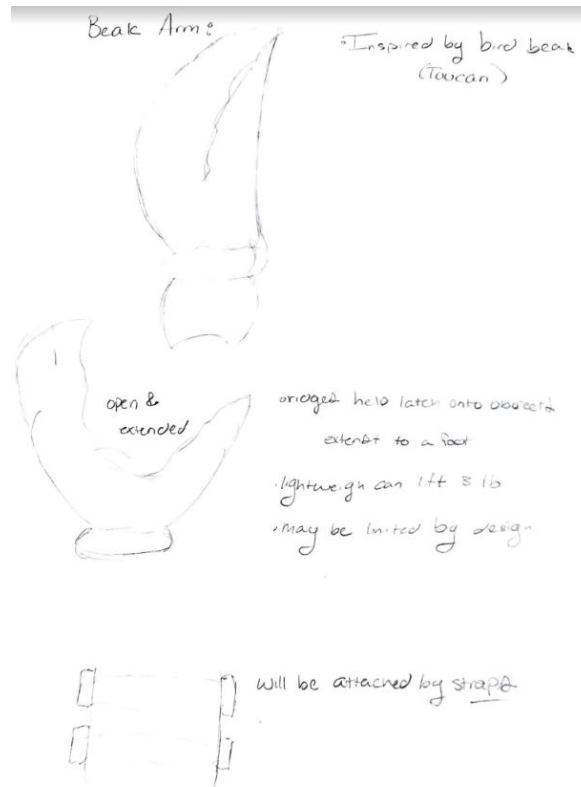 Beak Arm:
• Inspired by bird beak
(Toucan)
open &
extended
• ridges help latch onto objects
extends to a foot
• lightweigh can lift 3 lb
• may be limited by design
will be attached by straps